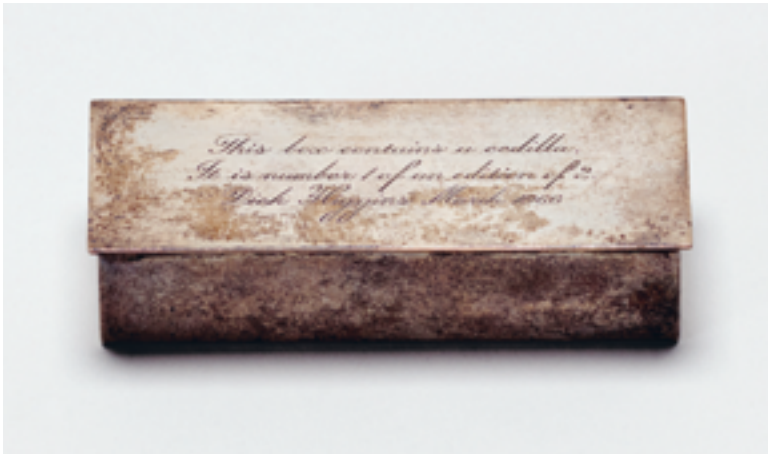 This box contains a cedilla.
It is number 1 of an edition of 2.
Dick Higgins March